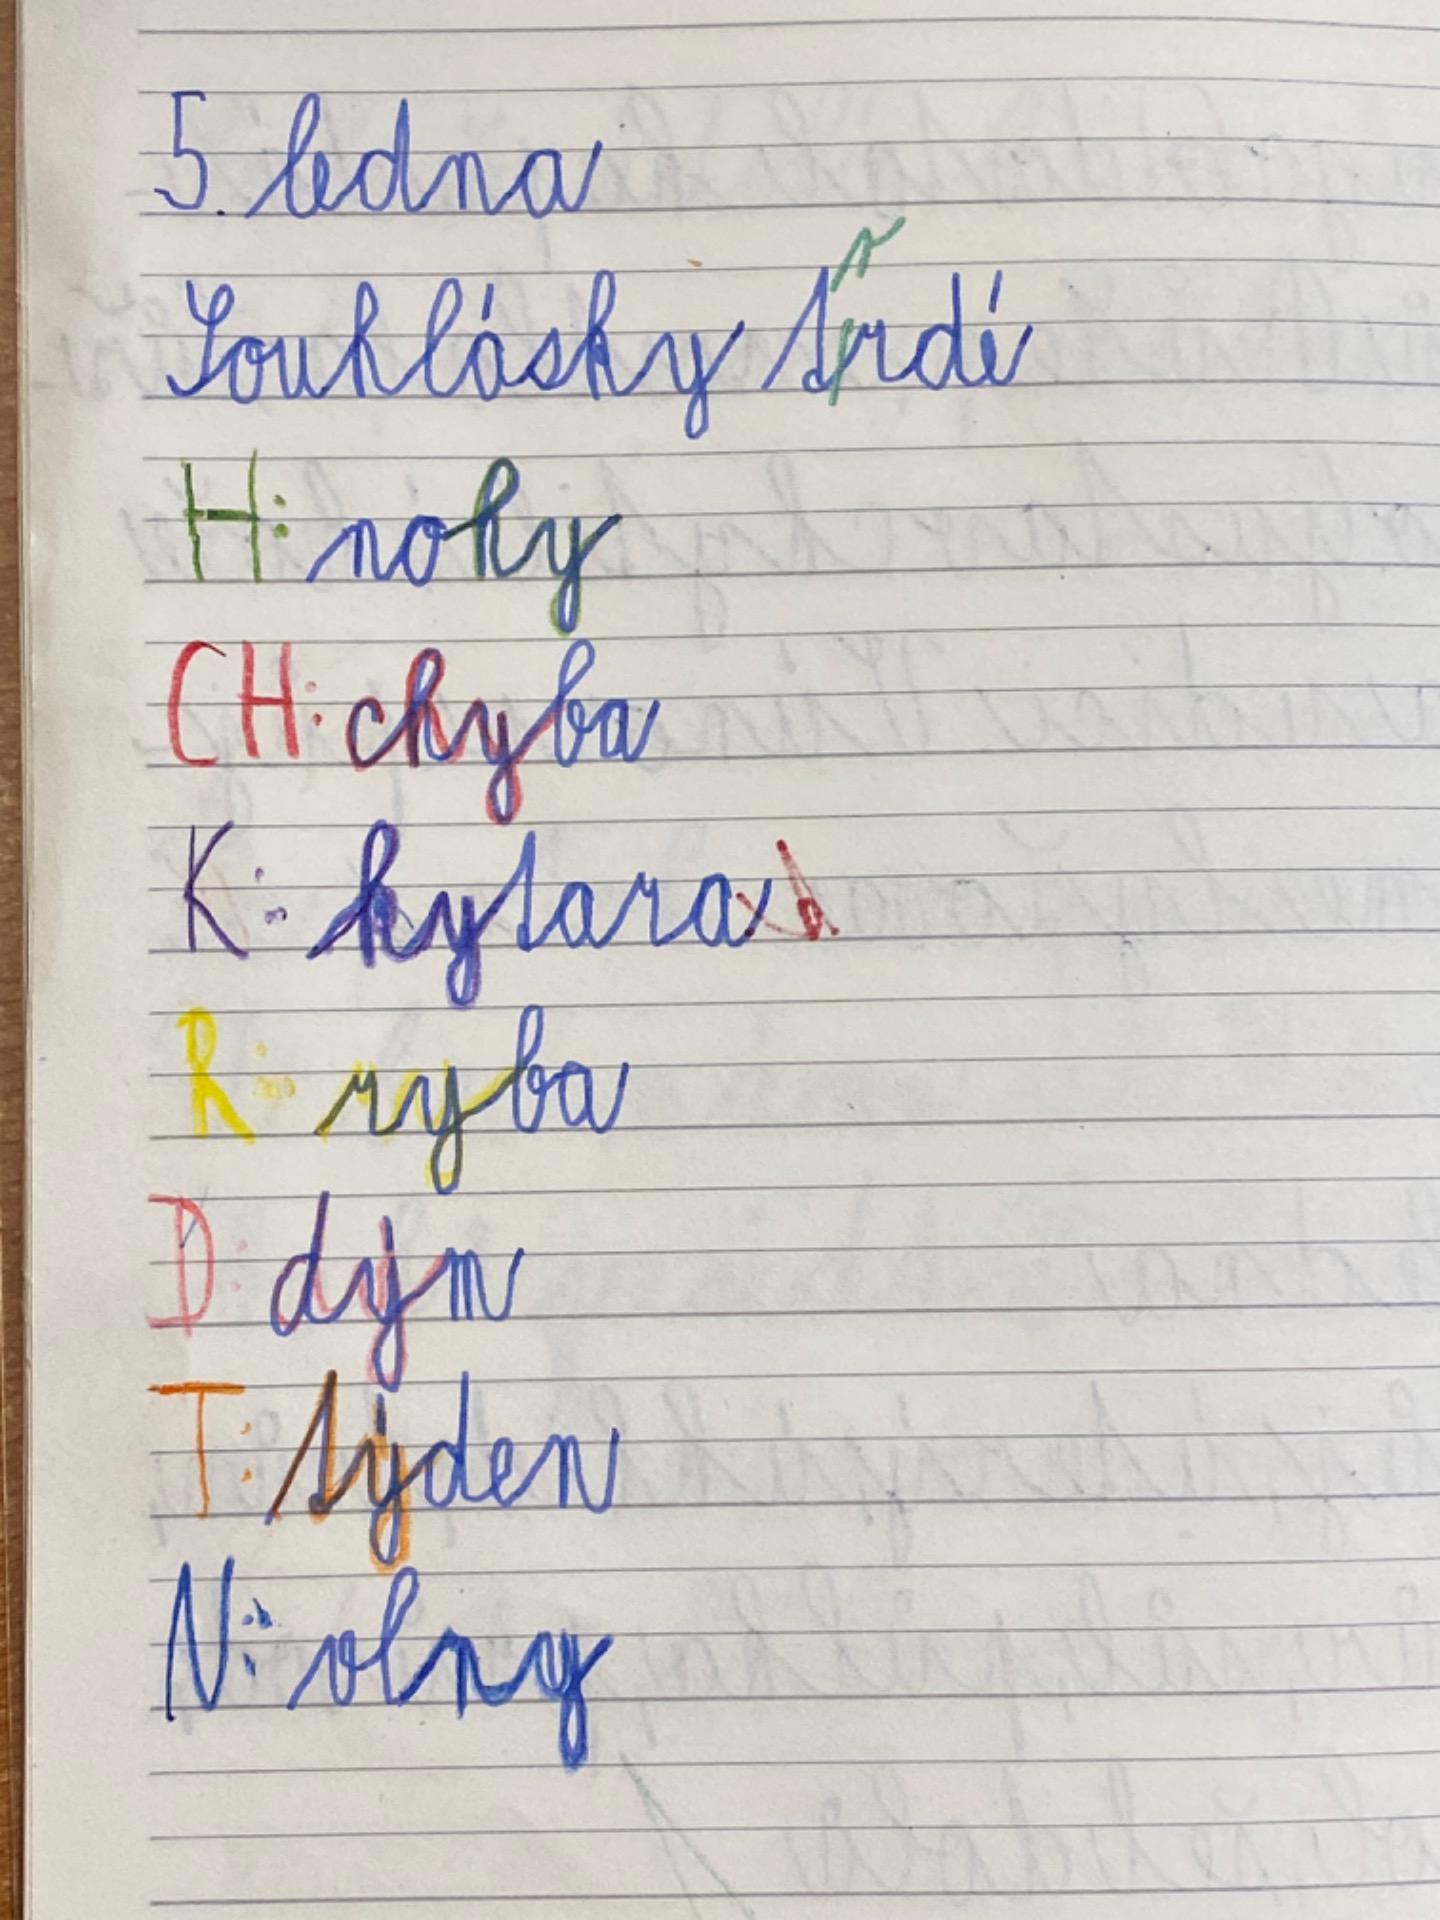 5. ledna
Souhlásky tvrdé
H: nohy
CH: chyba
K: kytara
R: ryba
D: dým
T: týden
N: vlny